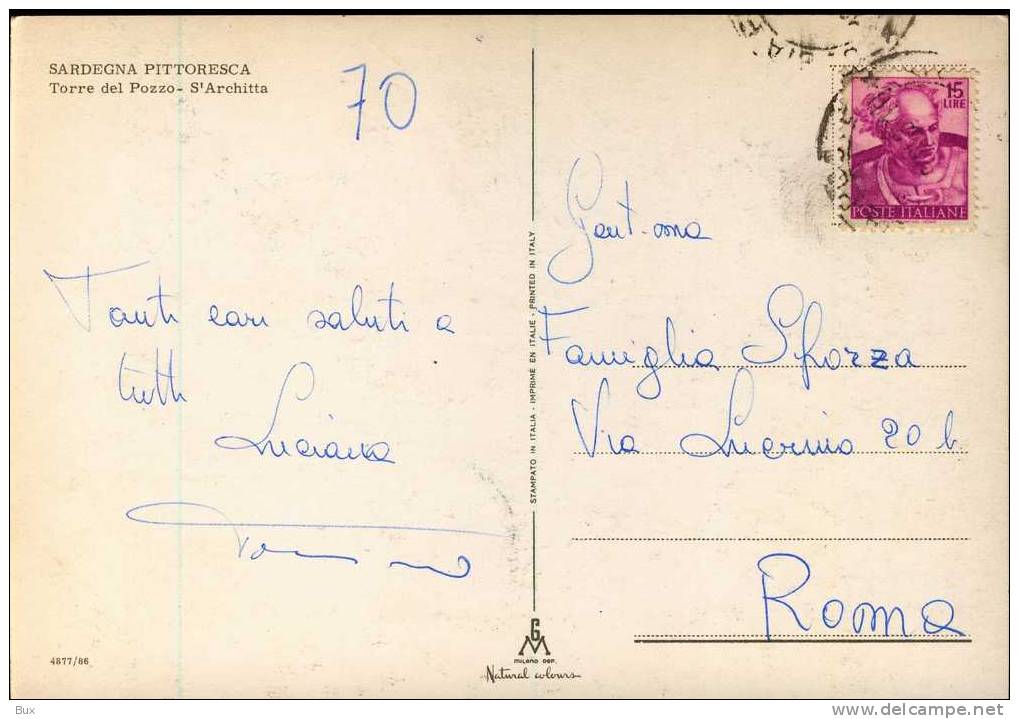 SARDEGNA PITTORESCA
Torre del Pozzo - S'Architta
70
15
LIRE
POSTE ITALIANE
Tanti cari saluti a
tutti
Luciana
STAMPATO IN ITALIA - IMPRIME EN ITALIE - PRINTED IN ITALY
Gent.ma
Famiglia Sforza
Via Lucrino 20 b
Roma
4877/86
G
M
MILANO DEP.
Natural colours
Bux
www.delcampe.net